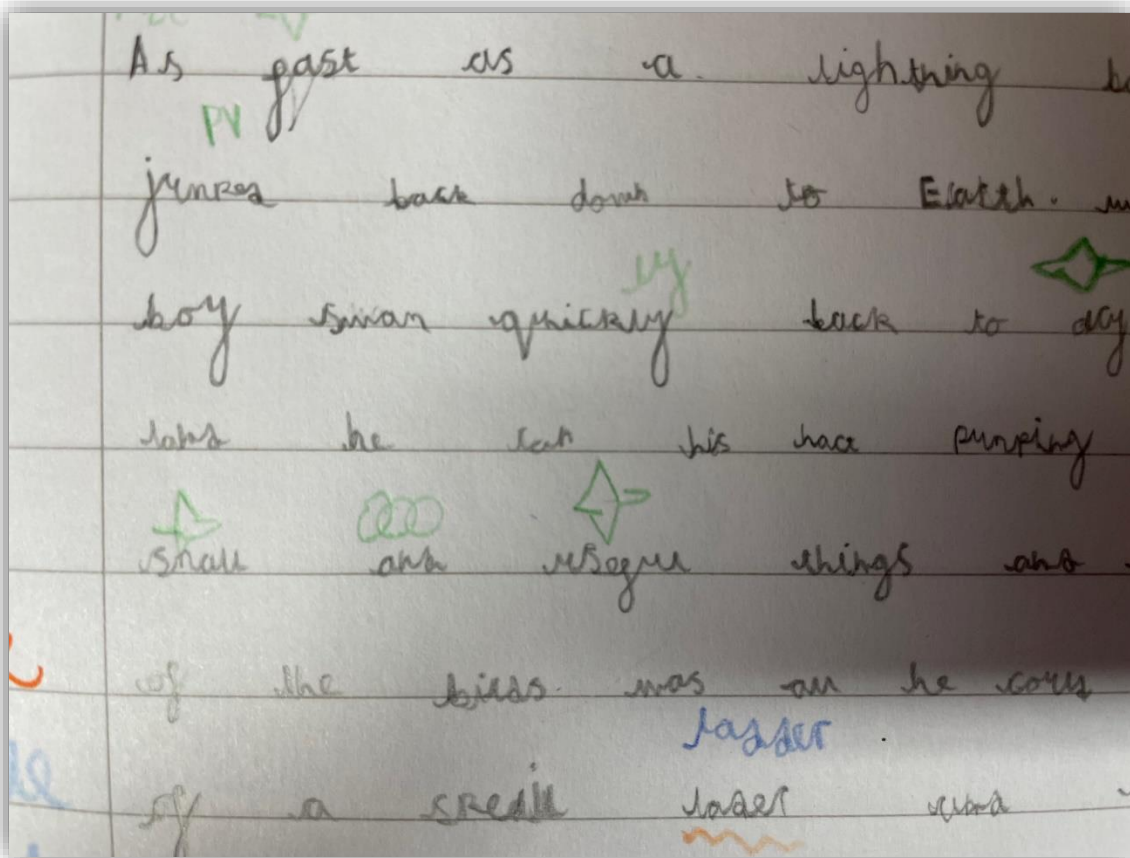 As fast as a lightning
PV
jumped back down to Earth.
ly
boy swam quickly back to dry
land he ran his hart pumping
small and usegul things and
of the birds was all he cory
lasser
of a laser